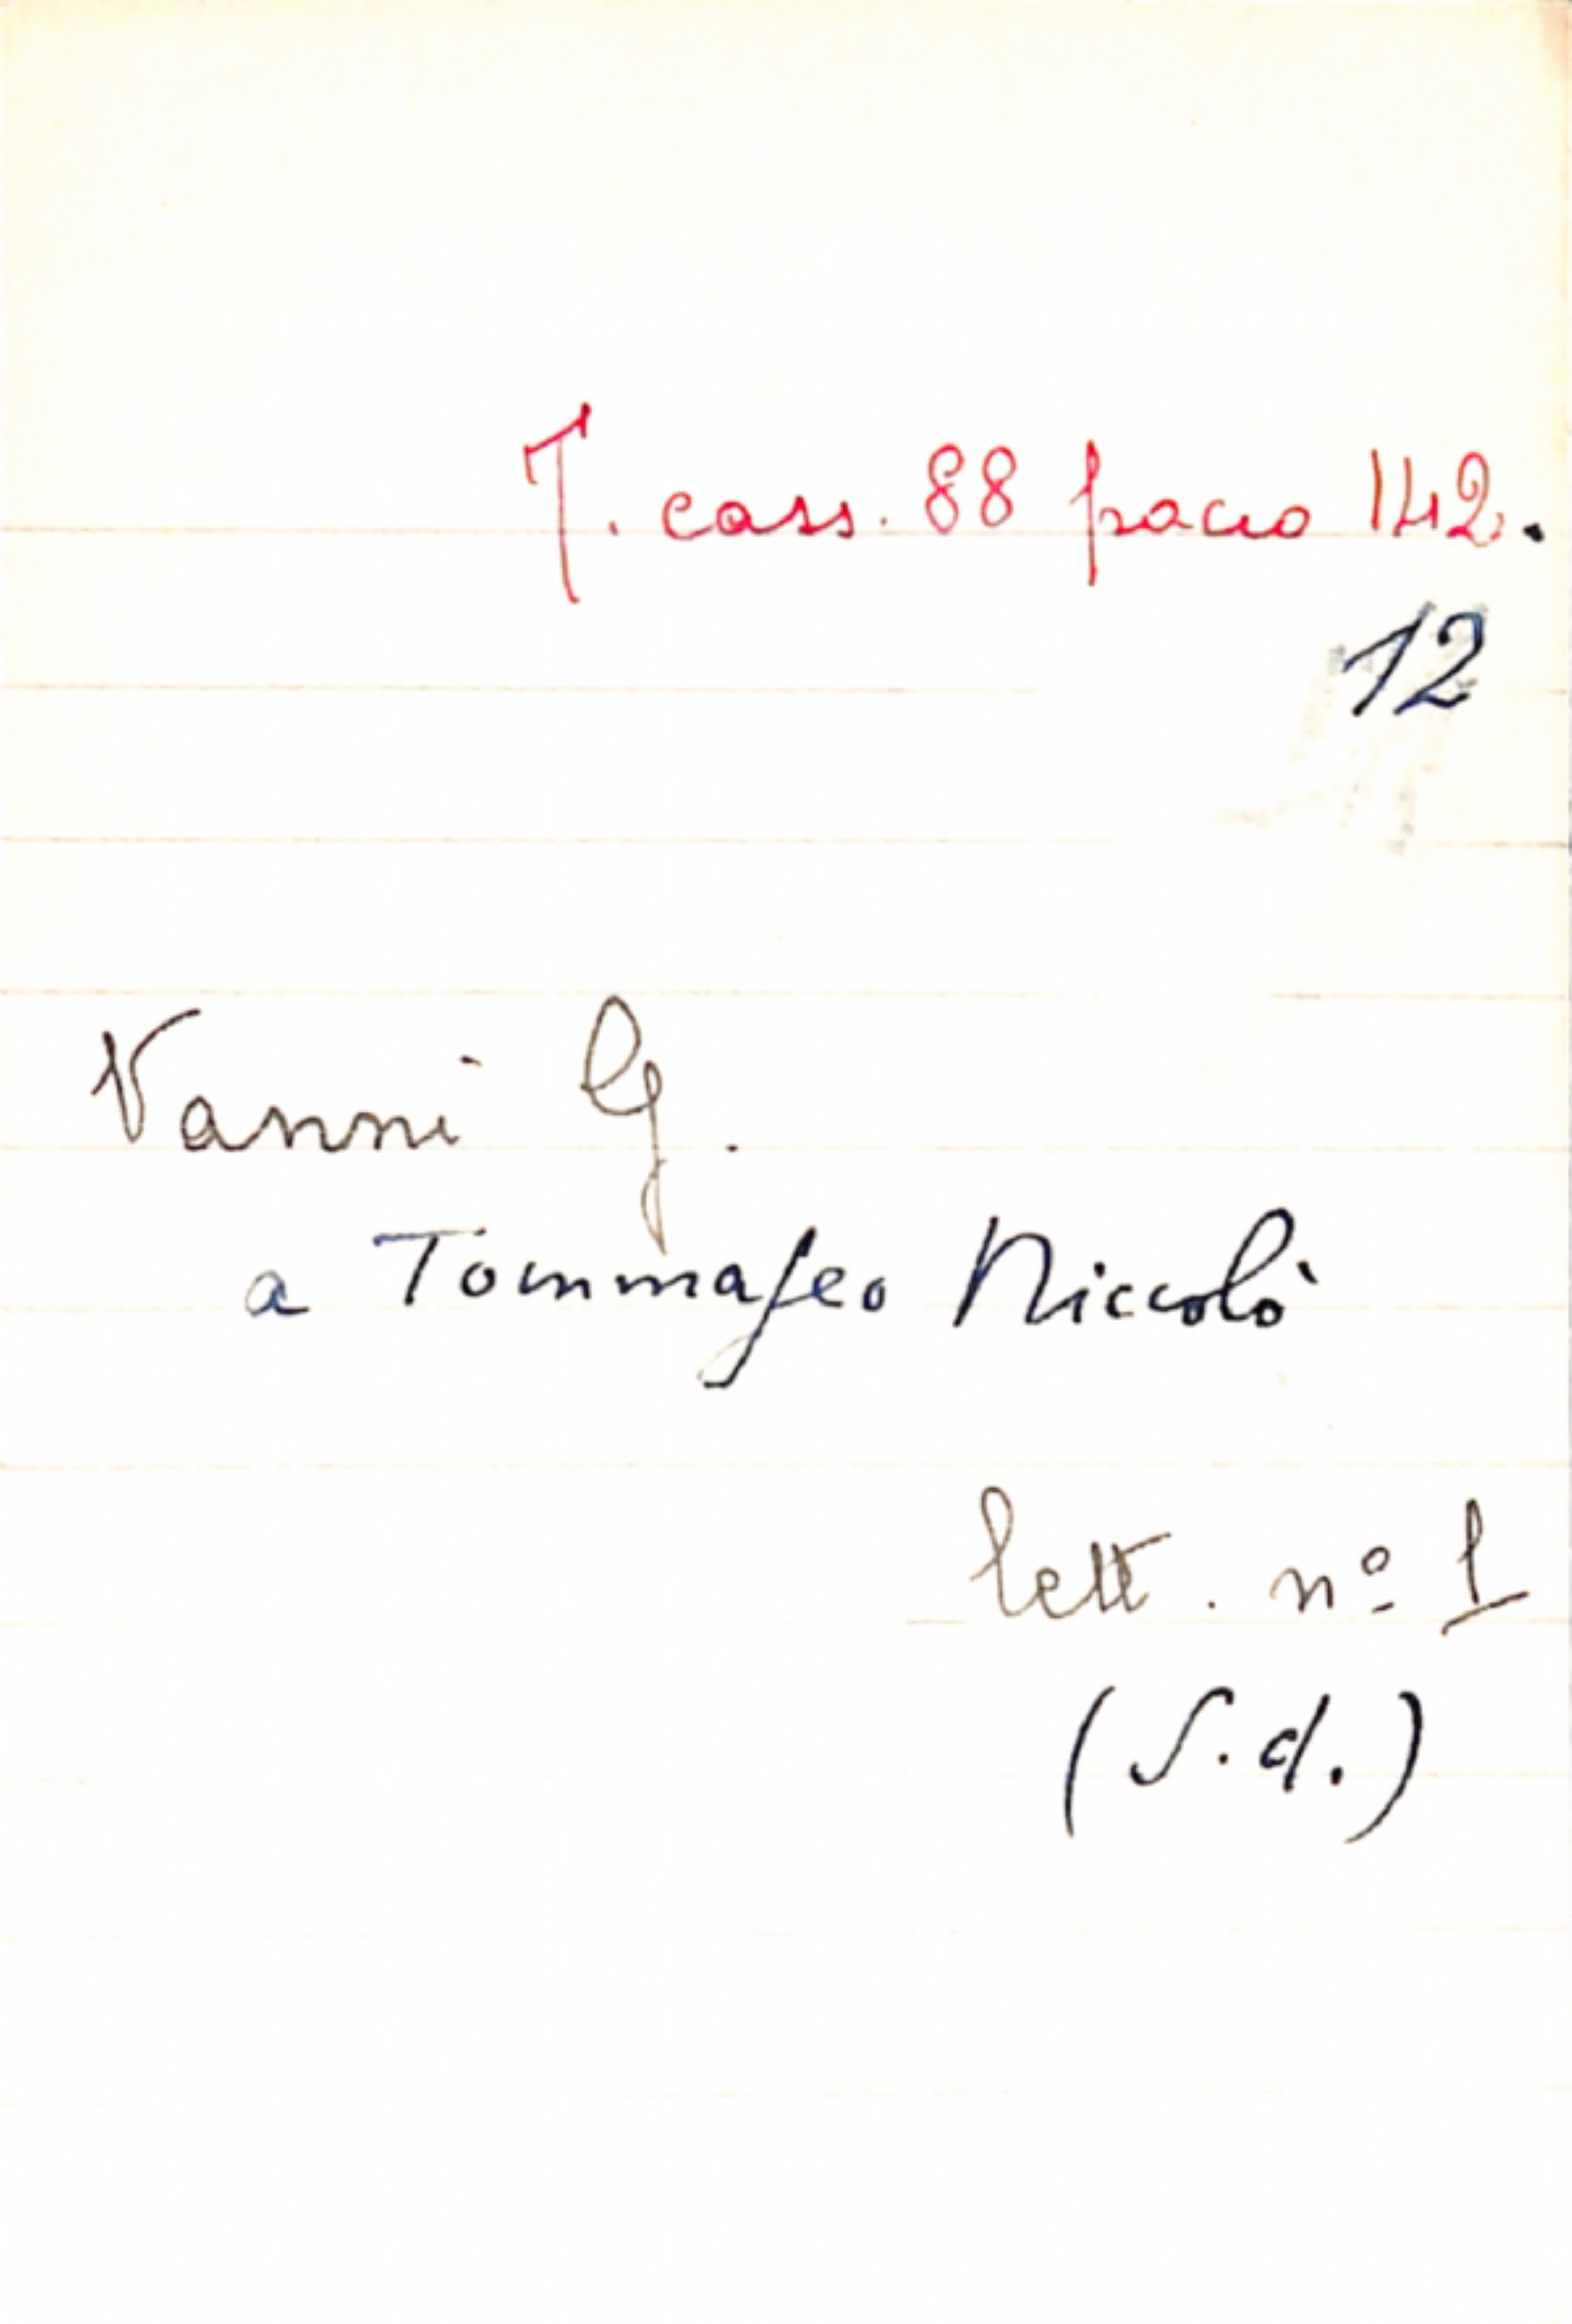 T. cass. 88 pacco 142.
12
Vanni G.
a Tommaseo Niccolò
lett. nº 1
(S.d.)